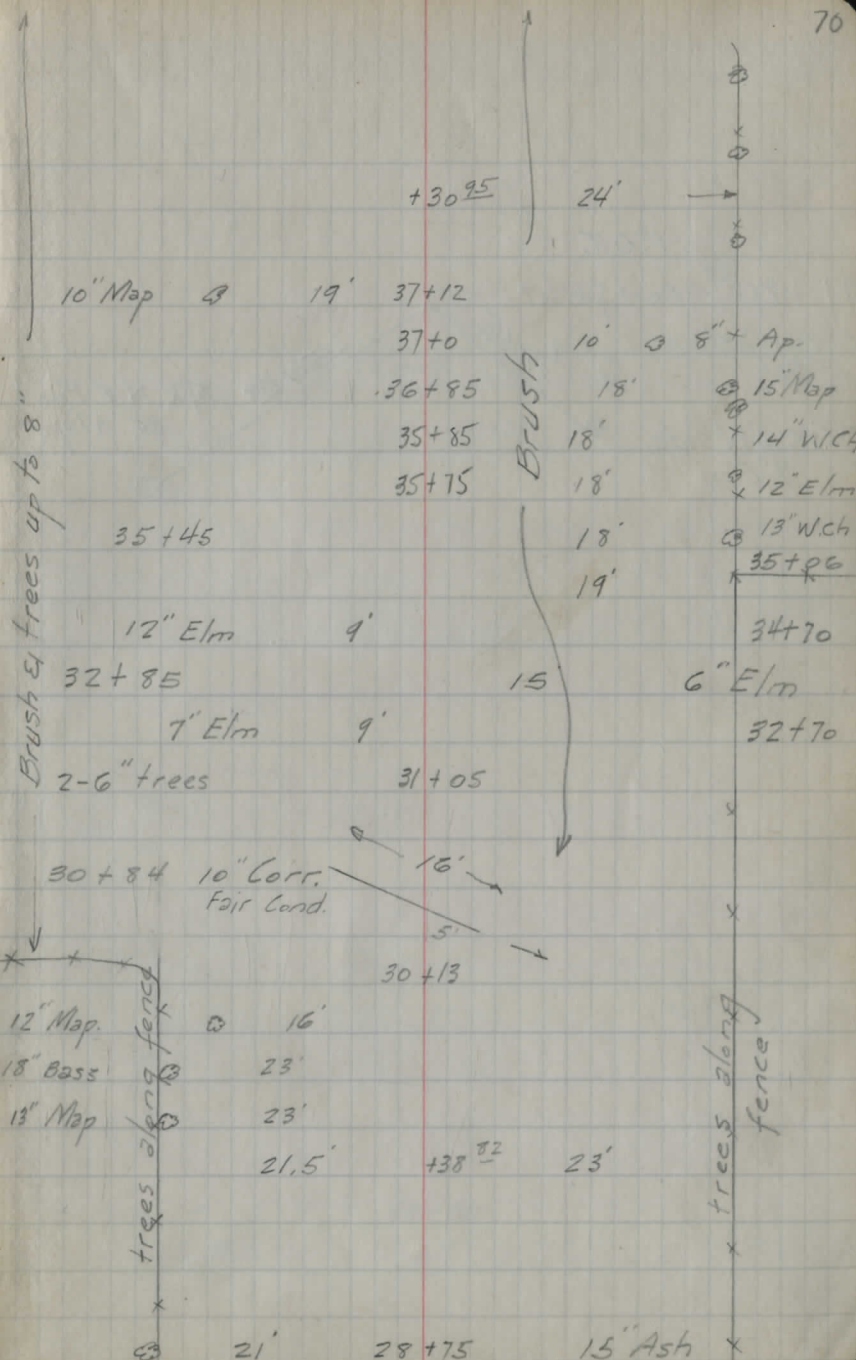 70
+30 95 24'
10" Map 19' 37+12
37+0 10' 8" Ap.
36+85 18' 15" Map
35+85 18' 14" W.Ch
35+75 18' 12" Elm
35+45 18' 13" W.ch
19' 35+06
12" Elm 9' 34+70
32+85 15 6" Elm
7" Elm 9' 32+70
2-6" trees 31+05
Brush & trees up to 8"
Brush
30+84 10" Corr. 16'
Fair Cond.
5'
30+13
12" Map. 16'
18" Bass 23'
13" Map 23'
21.5' +38 82 23'
trees along fence
trees along
fence
21' 28+75 15" Ash